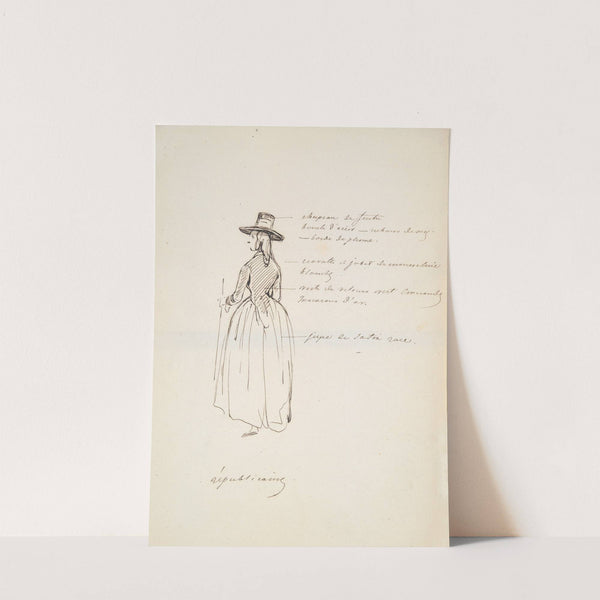 chapeau de feutre
boucle d'acier — rubans de soie
— bordé de plume.
cravatte et jabot de mousseline
blanche
veste de velours vert
d'or.
jupe de satin rose.
républicaine